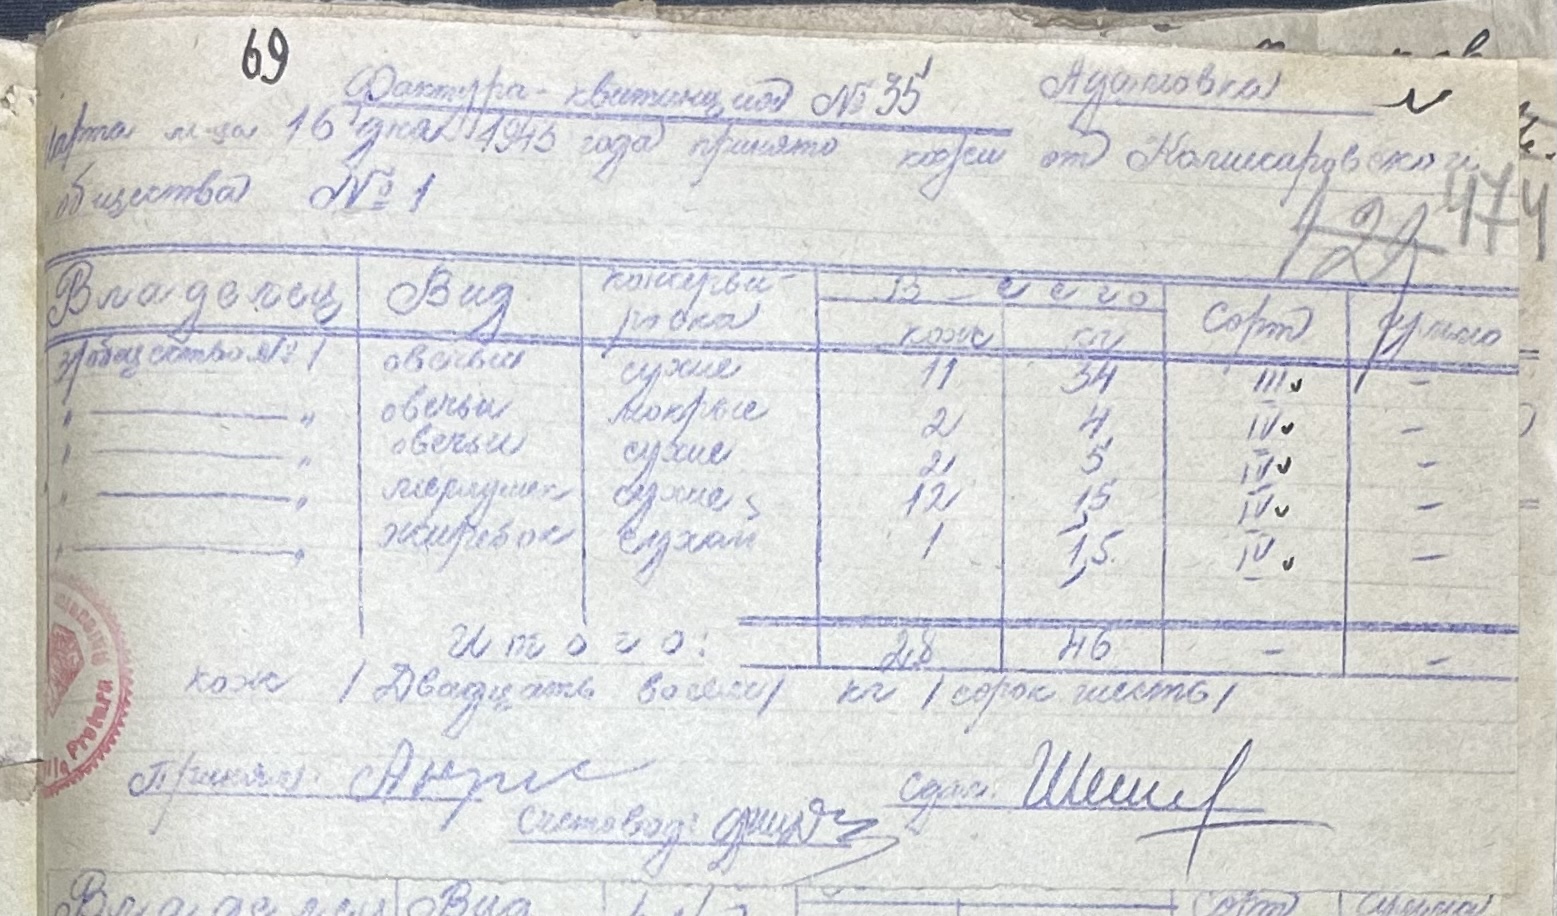 69
Фактура-квитанция № 35 Адамовка
марта м-ца 16 дня 1943 года принято кожи от Комисаровского
общества № 1
121 474
Владелец Вид консерви- В-сего сорт сумма
ровка кож кг
з/общество № 1 овечьи сухие 11 34 III -
" — " овечьи мокрые 2 4 IV -
" — " овечьи сухие 2 5 IV -
" — " мерлушек сухие 12 1,5 IV -
" — " жиребок сухой 1 1,5 IV -
Итого: 28 46 - -
кож /Двадцать восемь/ кг /сорок шесть/
Принял: сдал:
Счетовод:
Владелец Вид сорт сумма